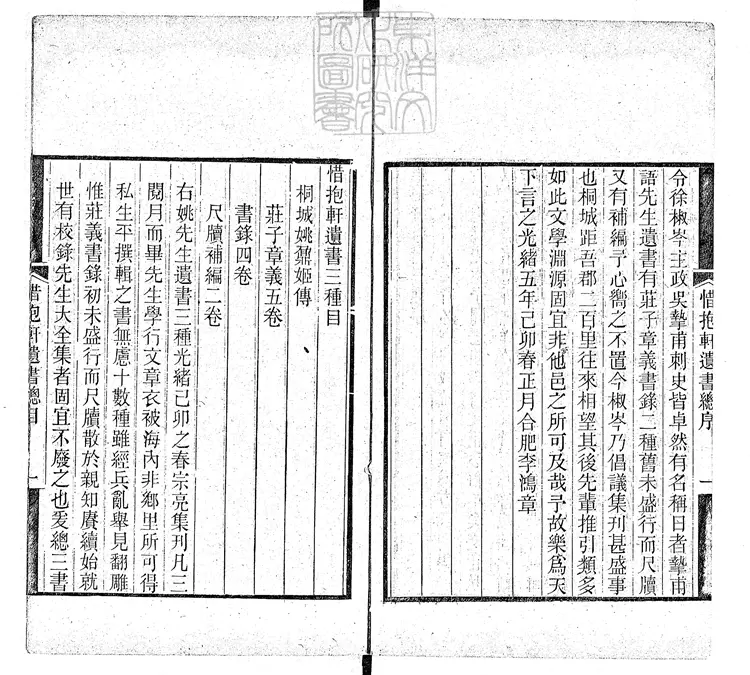 令徐椒岑主政吳摯甫刺史皆卓然有名稱曰者摯甫
語先生遺書有莊子章義書錄二種舊未盛行而尺牘
又有補編予心嚮之不置今椒岑乃倡議集刊甚盛事
也桐城距吾郡二百里往來相望其後先輩推引類多
如此文學淵源固宜非他邑之所可及哉予故樂為天
下言之光緒五年己卯春正月合肥李鴻章
惜抱軒遺書總序
一
惜抱軒遺書三種目
桐城姚鼐姬傳
莊子章義五卷
書錄四卷
尺牘補編二卷
右姚先生遺書三種光緒己卯之春宗亮集刊凡三
閱月而畢先生學行文章衣被海內非鄉里所可得
私生平撰輯之書無慮十數種雖經兵亂舉見翻雕
惟莊義書錄初未盛行而尺牘散於親知賡續始就
世有校錄先生大全集者固宜不廢之也爰總三書
惜抱軒遺書總目
一